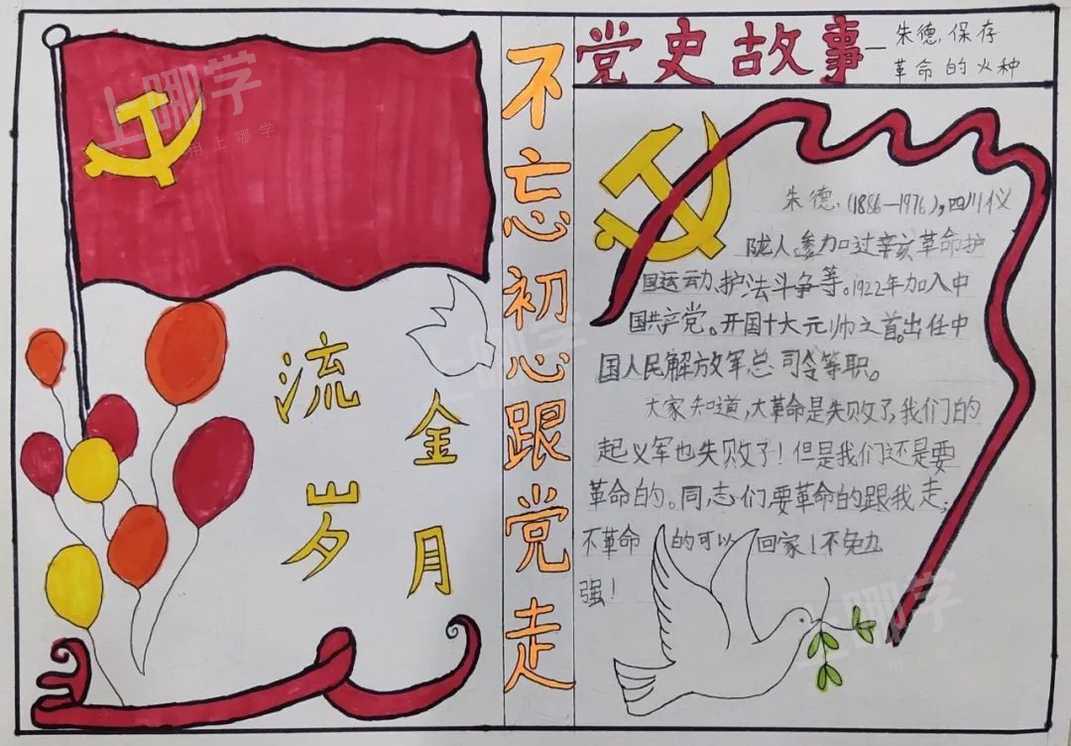 不忘初心跟党走
流金
岁月
党史故事—朱德,保存
革命的火种
朱德,(1886—1976),四川仪
陇人。参加过辛亥革命护
国运动、护法斗争等。1922年加入中
国共产党。开国十大元帅之首。出任中
国人民解放军总司令等职。
大家知道,大革命是失败了,我们的
起义军也失败了!但是我们还是要
革命的。同志们要革命的跟我走;
不革命的可以回家!不勉
强!
上哪学
用上哪学
上哪学
上哪学